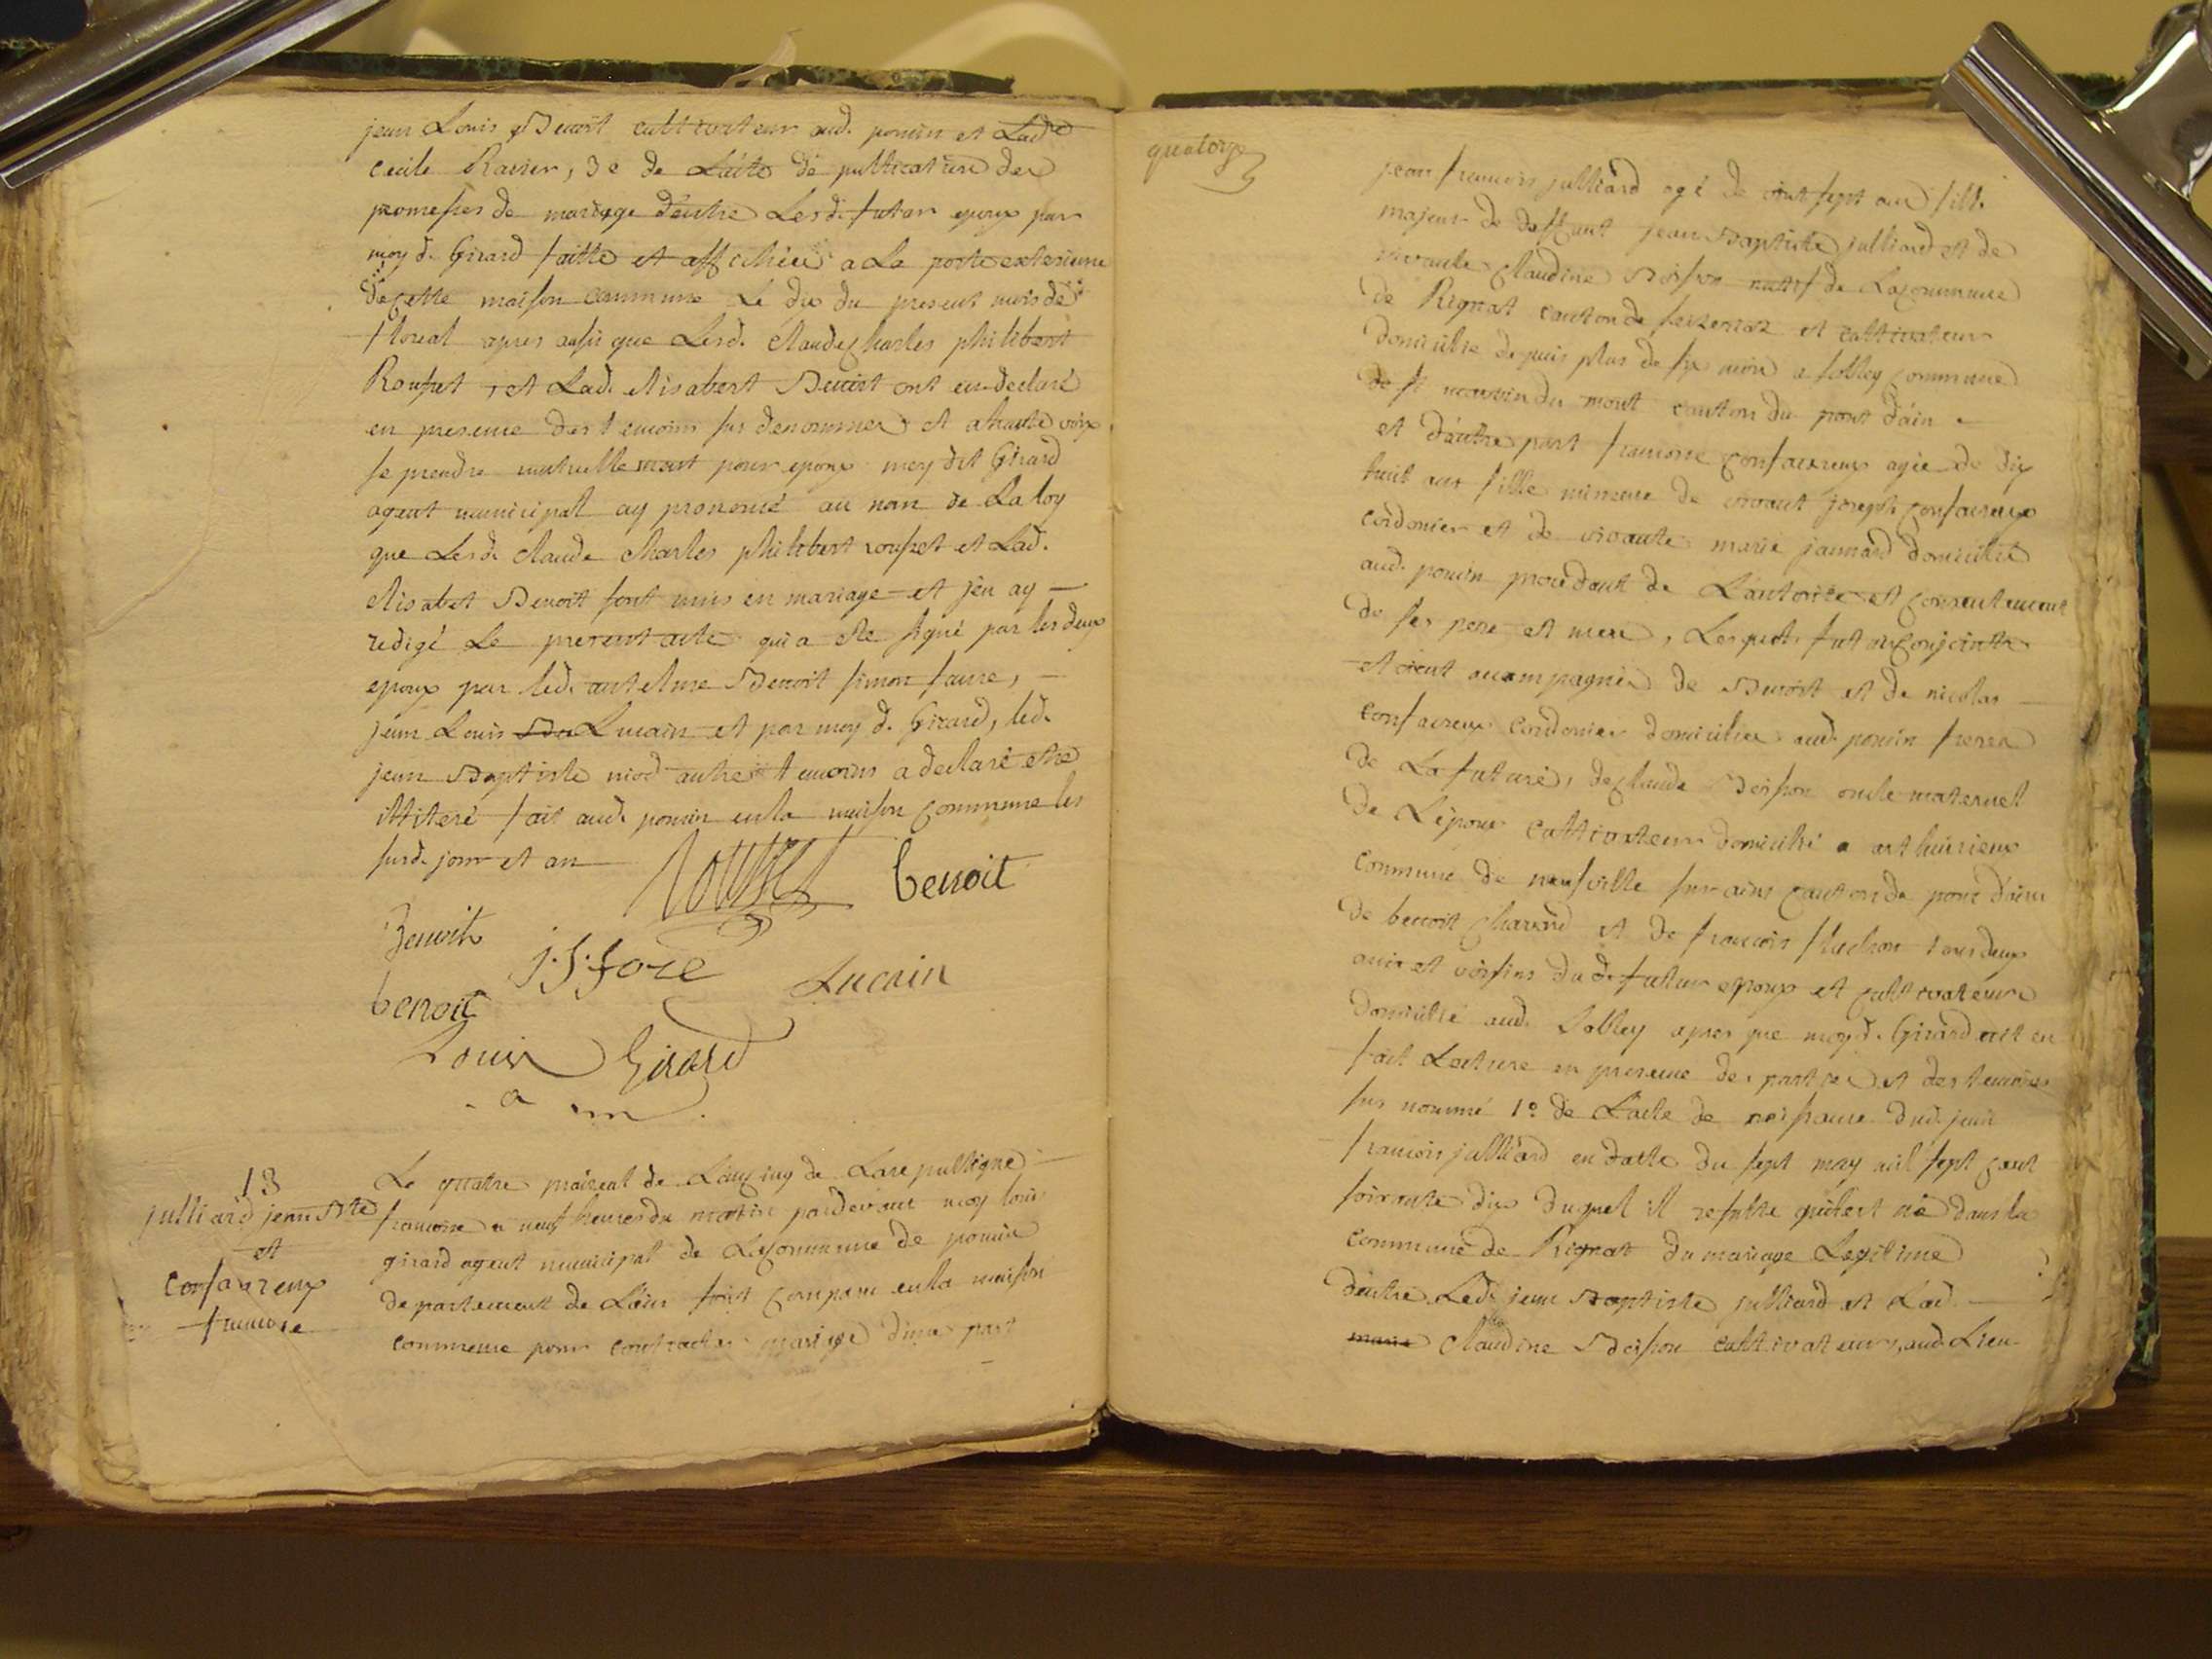 jean Louis Benoit cultivateur aud. poncin et Lad.
Cecile Ravier, 3e de Lacte de publication des
promesses de mariage d'entre Lesd. futur epoux par
moy d. Girard faitte et affichée a La porte exterieure
de cette maison commune Le dix du present mois de
floreal apres aussi que Lesd. Claude Charles philibert
Rousset, et Lad. elisabert Benoit ont eu declaré
en presence des temoins sus denommes et a haute voix
se prendre mutuellement pour epoux moy dit Girard
agent municipal ay prononcé au nom de La loy
que Lesd. Claude Charles philibert rousset et Lad.
elisabet Benoit sont unis en mariage et jen ay
redigé Le present acte qui a ete signé par les deux
epoux par led. antelme Benoit simon faure,
jean Louis Lucain et par moy d. Girard, led.
jean Baptiste niod autre temoins a declaré etre
illiteré fait aud. poncin en la maison commune les
susd. jour et an
rousset benoit
Benoit
J. S. fore
Lucain
benoit
Louis Girard
a m
13
julliard jean Bte
et
confavreux
francoise
Le quatre prairial de Lan cinq de La republique
francoise a neuf heures du matin pardevant moy louis
girard agent municipal de La commune de poncin
departement de Lain sont comparu en la maison
commune pour contracter mariage d'une part
quatorze
jean francois julliard agé de vint sept ans fils
majeur de deffunt jean Baptiste julliard et de
vivante Claudine Boisson natif de La commune
de Rignat canton de seizeriat et cultivateur
domicilié depuis plus de six mois a solley commune
de st mauvin du mont canton du pont d'ain
et d'autre part francoise confavreux agée de dix
huit ans fille mineure de vivant joseph confavreux
cordonier et de vivante marie jannard domicilié
aud. poncin procedant de L'autorité et consentement
de ses pere et mere, Lesquels futur conjoints
etoient accompagnés de Benoit et de nicolas
confavreux cordonier domiciliés aud. poncin freres
de La future, de Claude Boisson oncle maternel
de L'epoux cultivateur domicilié a arthurieux
commune de neufville sur ains canton de pont d'ain
de benoit Charvet et de francois fluchon tous deux
amis et voisins dud. futur epoux et cultivateurs
domicilié aud. Solley apres que moy d. Girard ait en
fait Lecture en presence des parties et des temoins
sus nommé 1º de Lacte de naissance dud. jean
francois julliard en datte du sept may mil sept cent
soixante dix duquel il resulte quil est né dans la
commune de Rignat du mariage Legitime
d'entre Led. jean Baptiste julliard et Lad.
marie Claudine Boisson cultivateurs, aud. Lieu